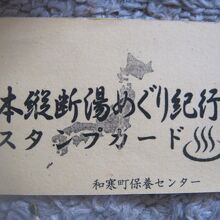 本縦断湯めぐり紀行
スタンプカード♨
和寒町保養センター